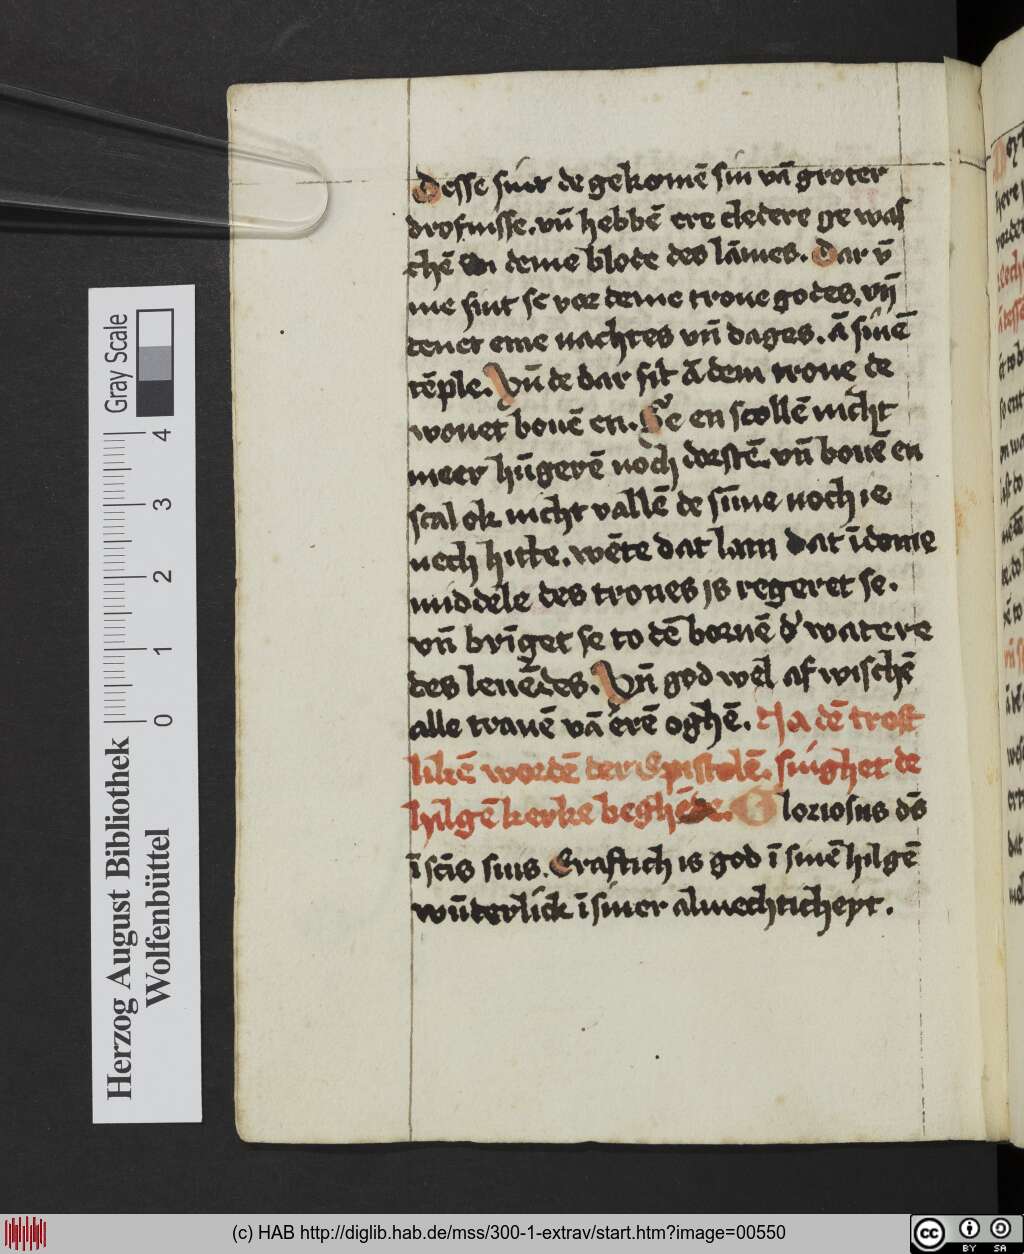 Desse sint de gekomē sin vā groter
drofnisse. vn̄ hebbē ere cledere ge was
chē in deme blode des lāmes. Dar v̄
me sint se vor deme trone godes. vn̄
denet eme nachtes vn̄ dages. ā sinē
tēple. Vn̄ de dar sit ā dem trone de
wonet bouē en. Se en scollē nicht
meer hūgerē noch dorstē. vn̄ bouē en
scal ok nicht vallē de sūne noch ie
nech hitte. wēte dat lam dat ī deme
middele des trones is regeret se.
vn̄ brīget se to dē bornē d' watere
des leuēdes. Vn̄ god wel af wischē
alle tranē vā erē oghē. Na dē trost
likē wordē der Epistolē. singhet de
hilgē kerke beghēde. Gloriosus ds̄
ī scīs suis. Craftich is god ī sinē hilgē
wūderlick ī siner almechticheyt.
Herzog August Bibliothek
Wolfenbüttel
Gray Scale
0 1 2 3 4
(c) HAB http://diglib.hab.de/mss/300-1-extrav/start.htm?image=00550
cc BY SA